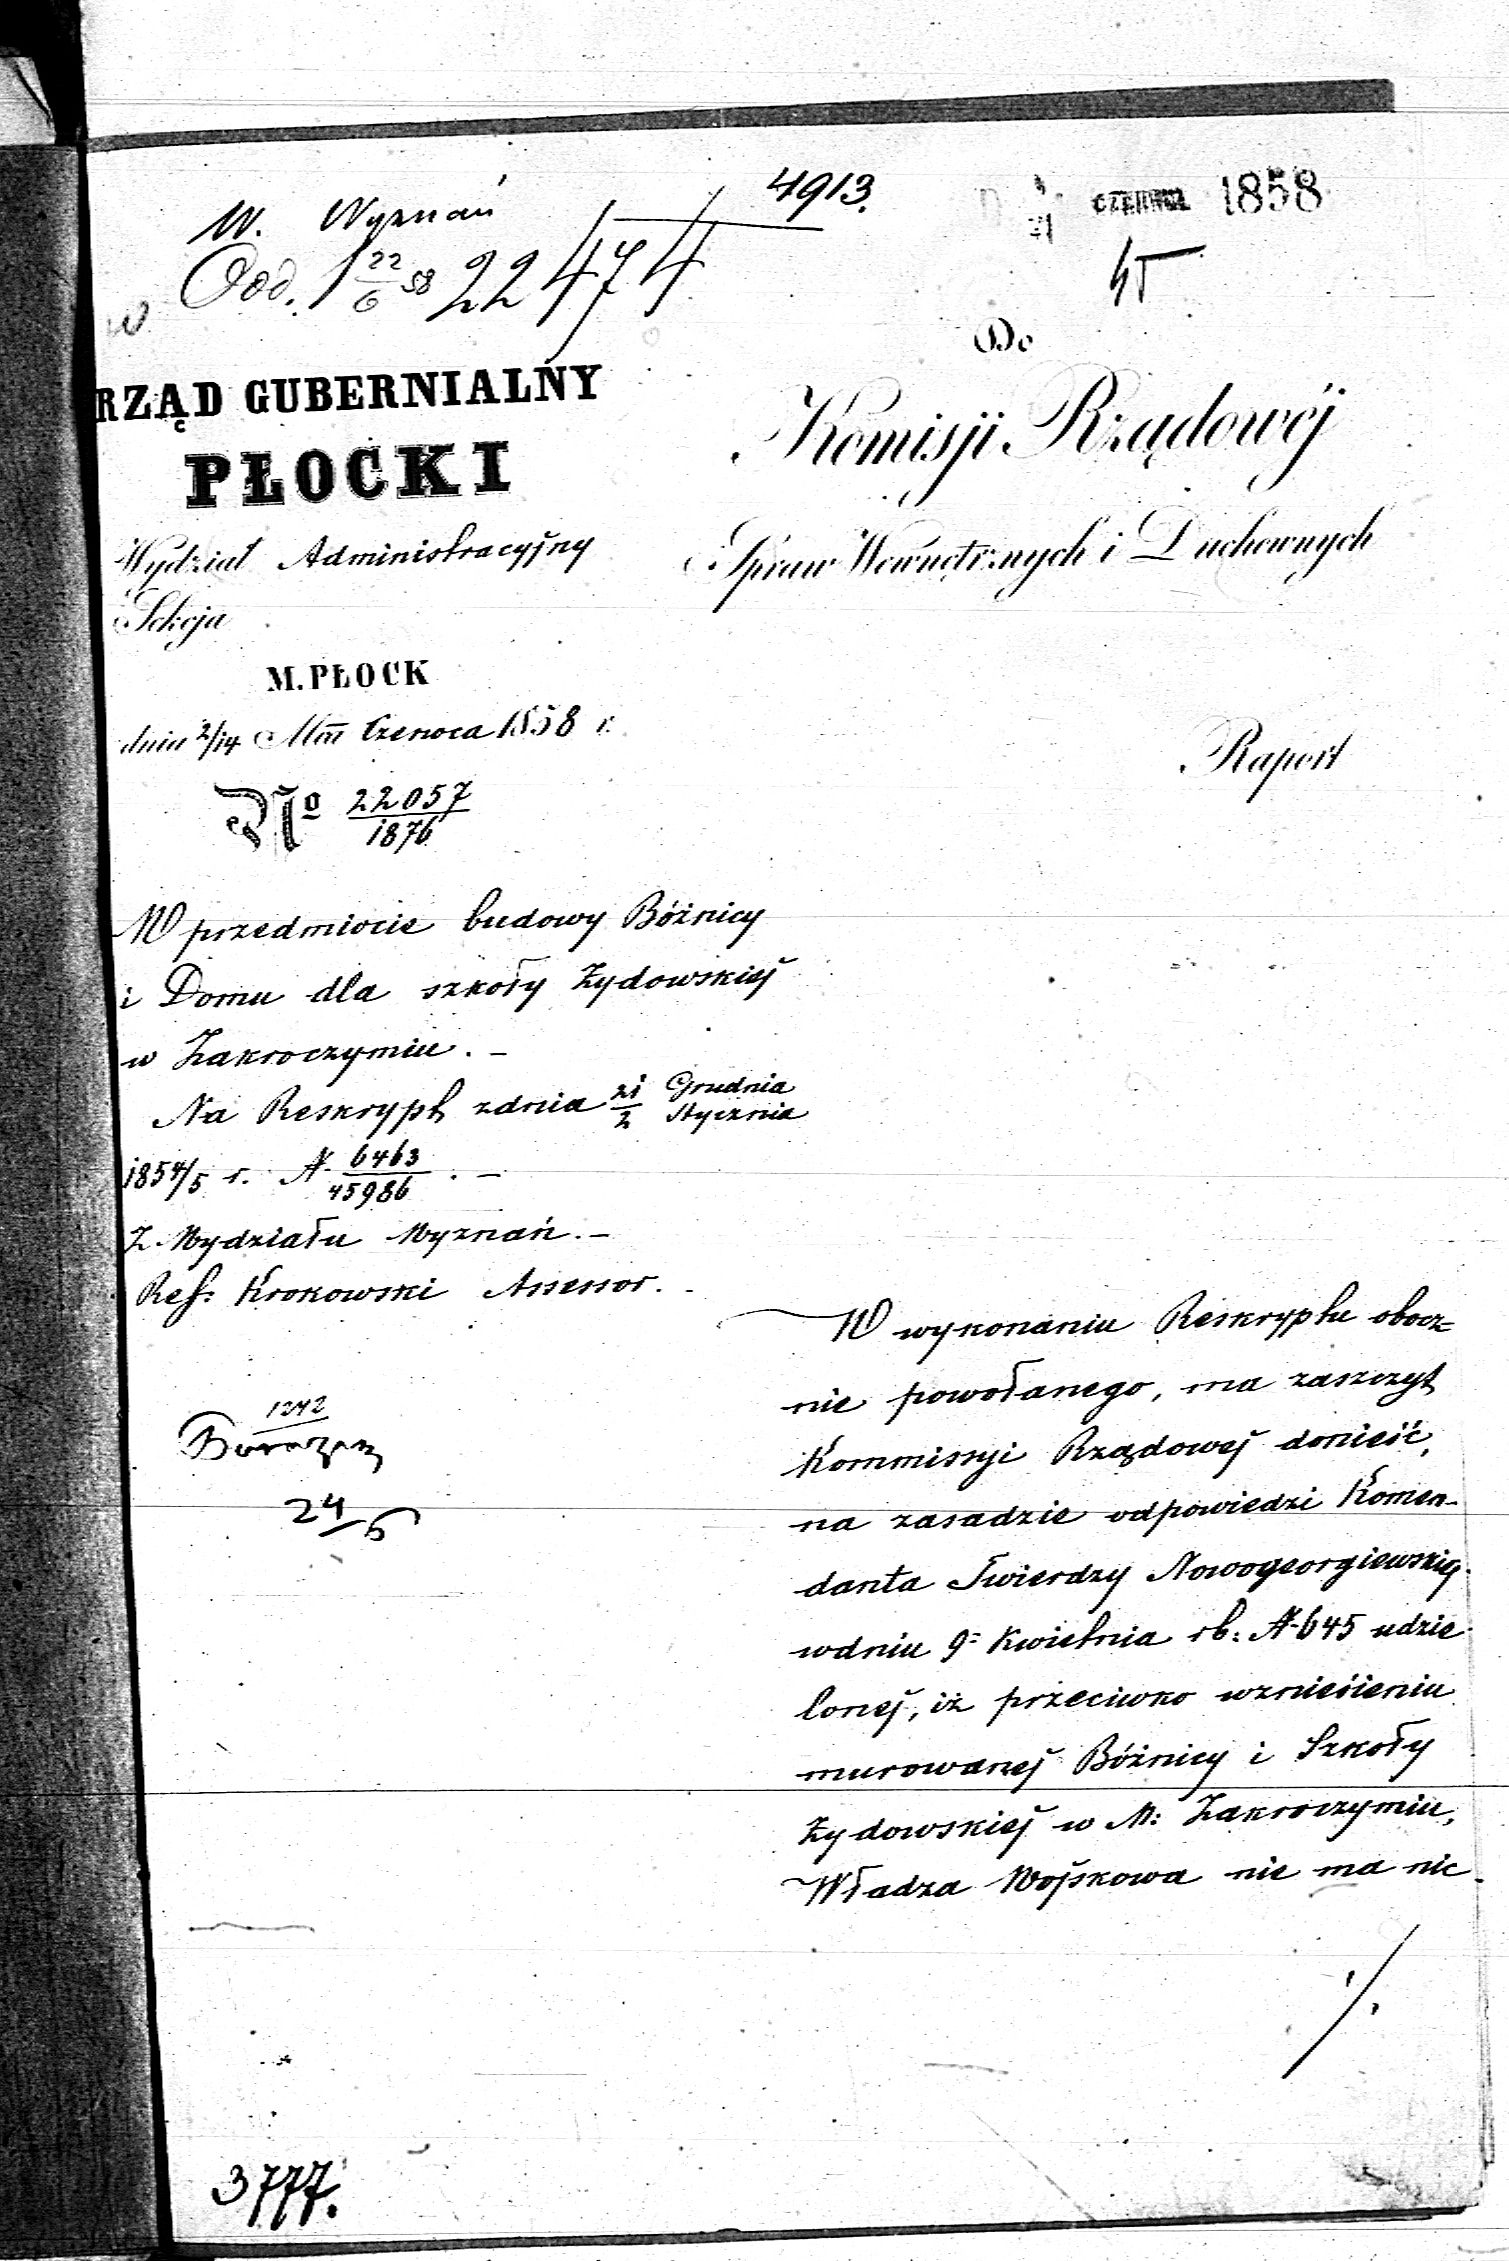 4913.
W. Wyznań
CZERWCA 1858
Odd. 1 22/6 58 22474
Do
RZĄD GUBERNIALNY
PŁOCKI
Komisji Rządowéj
Spraw Wewnętrznych i Duchownych
Wydział Administracyjny
Sekcja
M. PŁOCK
dnia 2/14 Mca Czerwca 1858 r.
Raport
No 22057/1876
W przedmiocie budowy Bóżnicy
i Domu dla szkoły Żydowskiej
w Zakroczymiu. –
Na Reskrypt zdnia 21/2 Grudnia/Stycznia
1854/5 r. N. 6463/45986. –
Z Wydziału Wyznań. –
Ref: Krokowski Assessor.
1242
24/6
W wykonaniu Reskryptu obocz=
nie powołanego, ma zaszczyt
Kommissyi Rządowej donieść,
na zasadzie odpowiedzi Komen-
danta Twierdzy Nowogeorgiewskiej
wdniu 9= Kwietnia rb: N 645 udzie-
lonej, iż przeciwko wzniesieniu
murowanej Bóżnicy i Szkoły
Żydowskiej w M: Zakroczymiu,
Władza Wojskowa nie ma nic
./.
3777.